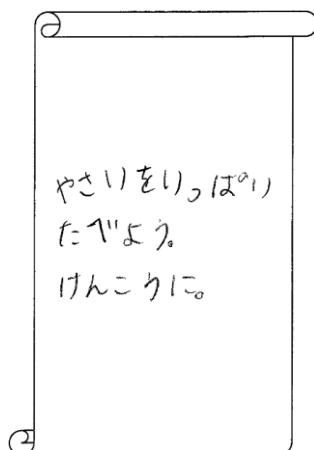 やさいをいっぱい
たべよう。
けんこうに。